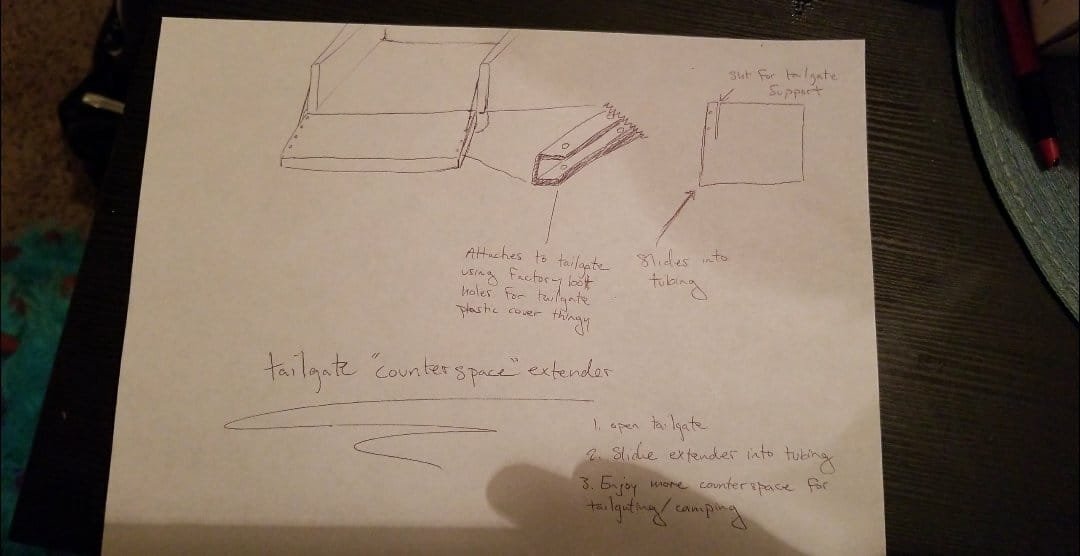 Slit for tailgate
Support
Attaches to tailgate
using factory bolt
holes for tailgate
plastic cover thingy
Slides into
tubing
tailgate "counterspace" extender
1. open tailgate
2. Slide extender into tubing
3. Enjoy more counterspace for
tailgating/camping